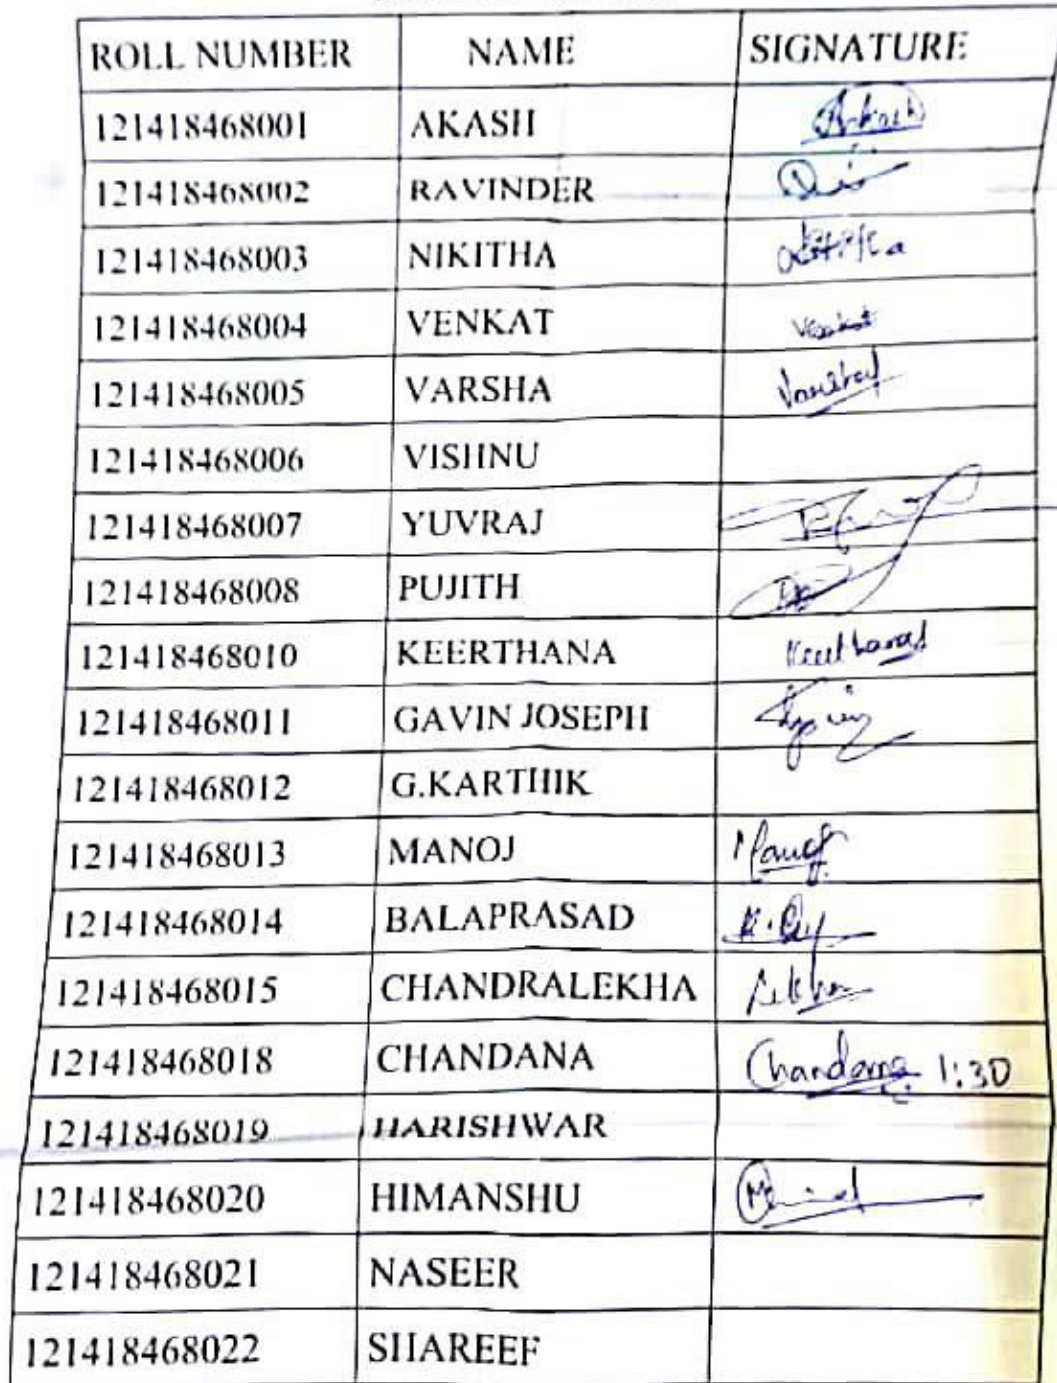 ROLL NUMBER NAME SIGNATURE
121418468001 AKASH Akash
121418468002 RAVINDER
121418468003 NIKITHA
121418468004 VENKAT Venkat
121418468005 VARSHA
121418468006 VISHNU
121418468007 YUVRAJ
121418468008 PUJITH
121418468010 KEERTHANA
121418468011 GAVIN JOSEPH
121418468012 G.KARTHIK
121418468013 MANOJ Manoj
121418468014 BALAPRASAD
121418468015 CHANDRALEKHA Lekha
121418468018 CHANDANA Chandana 1:30
121418468019 HARISHWAR
121418468020 HIMANSHU
121418468021 NASEER
121418468022 SHAREEF